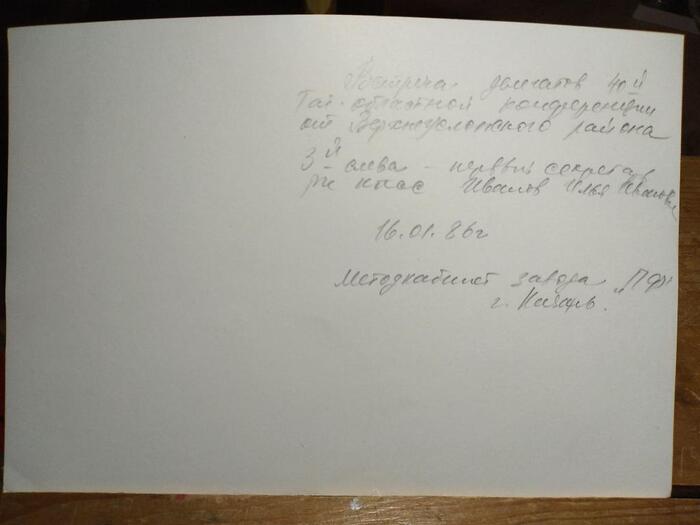 Встреча делегатов 40й
Тат. областной конференции
от Верхнеуслонского района
3й слева - первый секретарь
рк КПСС Иванов Илья Иванович
16.01.86г
Методкабинет завода
г. Казань.